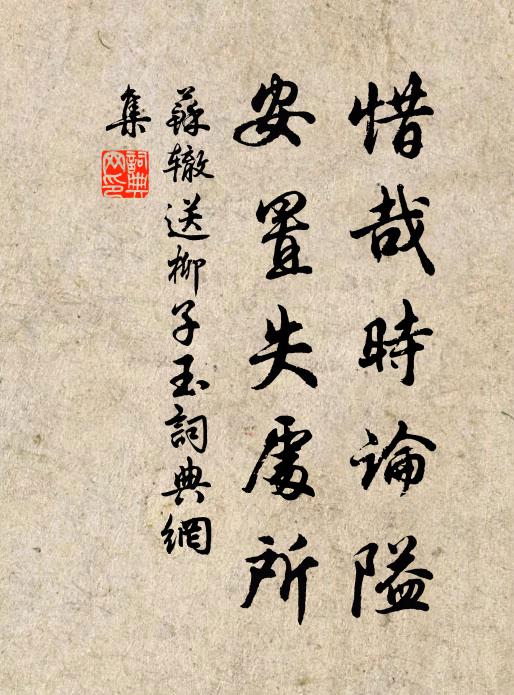 惜哉時論隘
安置失處所
蘇辙送柳子玉詞典網
集
詞典
网印